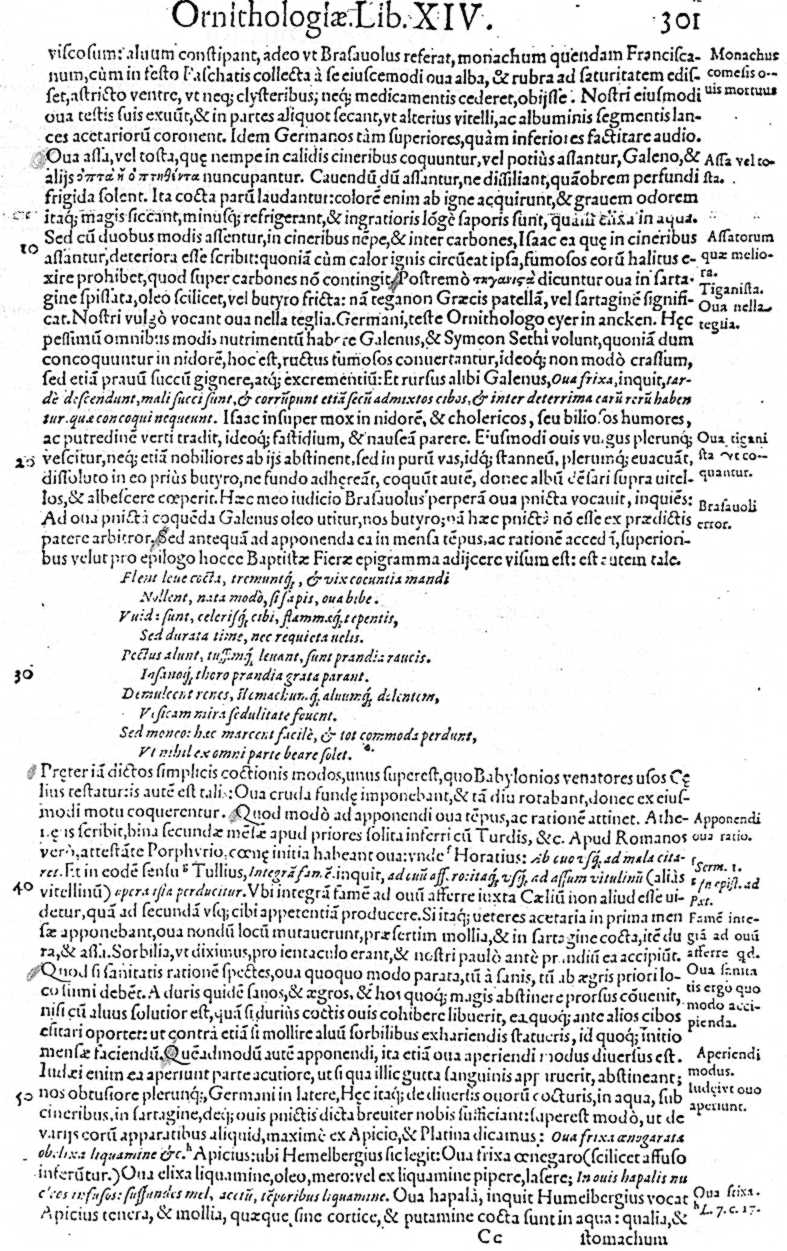 Ornithologiæ. Lib. XIV. 301
viscosum: aluum constipant, adeo vt Brasauolus referat, monachum quendam Francisca-
num, cùm in festo Paschatis collecta à se eiuscemodi oua alba, & rubra ad saturitatem edis-
set, astricto ventre, vt neq; clysteribus; neq; medicamentis cederet, obijsse. Nostri eiusmodi
oua testis suis exuũt, & in partes aliquot secant, vt alterius vitelli, ac albuminis segmentis lan-
ces acetariorũ coronent. Idem Germanos tàm superiores, quàm inferiores factitare audio.
Oua assa, vel tosta, quę nempe in calidis cineribus coquuntur, vel potiùs assantur, Galeno, &
alijs ὀπτὰ ἢ ὀπτηθέντα nuncupantur. Cauendũ dũ assantur, ne dissiliant, quãobrem perfundi
frigida solent. Ita cocta parũ laudantur: colorẽ enim ab igne acquirunt, & grauem odorem
itaq; magis siccant, minusq; refrigerant, & ingratioris lõgè saporis sunt, quàm elixa in aqua.
Sed cũ duobus modis assentur, in cineribus nẽpe, & inter carbones, Isaac ea quę in cineribus
assantur, deteriora esse scribit: quoniã cùm calor ignis circũeat ipsa, fumosos eorũ halitus e-
xire prohibet, quod super carbones nõ contingit. Postremò τηγανιςὰ dicuntur oua in sarta-
gine spissata, oleo scilicet, vel butyro fricta: nã teganon Græcis patellã, vel sartaginẽ signifi-
cat. Nostri vulgò vocant oua nella teglia. Germani, teste Ornithologo eyer in ancken. Hęc
pessimũ omnibus modis nutrimentũ habere Galenus, & Symeon Sethi volunt, quoniã dum
concoquuntur in nidorẽ, hoc est, ructus fumosos conuertantur, ideoq; non modò crassum,
sed etiã prauũ succũ gignere, atq; excrementiũ: Et rursus alibi Galenus, Oua frixa, inquit, tar-
dè descendunt, mali succi sunt, & corrũpunt etiã secũ admixtos cibos, & inter deterrima earũ rerũ haben
tur, quæ concoqui nequeunt. Isaac insuper mox in nidorẽ, & cholericos, seu biliosos humores,
ac putredinẽ verti tradit, ideoq; fastidium, & nauseã parere. Eiusmodi ouis vulgus plerunq;
vescitur, neq; etiã nobiliores ab ijs abstinent, sed in purũ vas, idq; stanneũ, plerunq; euacuãt,
dissoluto in eo priùs butyro, ne fundo adhereãt, coquũt autẽ, donec albũ dẽsari supra uitel-
los, & albescere cœperit. Hæc meo iudicio Brasauolus perperã oua pnicta vocauit, inquiẽs:
Ad oua pnictà coquẽda Galenus oleo utitur, nos butyro; nã hæc pnictà nõ esse ex prædictis
patere arbitror. Sed antequã ad apponenda ea in mensa tẽpus, ac rationẽ accedã, superiori-
bus velut pro epilogo hocce Baptistæ Fieræ epigramma adijcere visum est: est autem tale.
Flent leue cocta, tremuntq́;, & vix coeuntia mandi
Nollent, nata modò, si sapis, oua bibe.
Vuida sunt, celerisq́; cibi, flammæq́; tepentis,
Sed durata time, nec requieta uelis.
Pectus alunt, tussimq́; leuant, sunt prandia raucis.
Insanoq́; thoro prandia grata parant.
Demulcent renes, stomachumq́;, aluumq́; dolentem,
Vesicam mira sedulitate fouent.
Sed moneo: hæc marcent facilè, & tot commoda perdunt,
Vt nihil ex omni parte beare solet.
Pręter iã dictos simplicis coctionis modos, unus superest, quo Babylonios venatores usos Cę
lius testatur: is autẽ est talis: Oua cruda fundę imponebant, & tã diu rotabant, donec ex eius-
modi motu coquerentur. Quod modò ad apponendi oua tẽpus, ac rationẽ attinet. Athe-
neus scribit, bina secundæ mẽsæ apud priores solita inferri cũ Turdis, &c. Apud Romanos
verò, attestãte Porphyrio, cœnę initia habeant oua: vnde f Horatius: Ab ouo vsq́; ad mala cita-
ret. Et in eodẽ sensu g Tullius, Integrã famẽ, inquit, ad ouũ affero: itaq́; vsq́; ad assum vitulinũ (aliàs
vitellinũ) opera ista perducitur. Vbi integrã famẽ ad ouũ afferre iuxta Cæliũ non aliud esse ui-
detur, quã ad secundã vsq; cibi appetentiã producere. Si itaq; ueteres acetaria in prima men
sæ apponebant, oua nondũ locũ mutauerunt, præsertim mollia, & in sartagine cocta, itẽ du
ra, & assa. Sorbilia, vt diximus, pro ientaculo erant, & nostri paulò antè prandiũ ea accipiũt.
Quod si sanitatis rationẽ spectes, oua quoquo modo parata, tũ à sanis, tũ ab ægris priori lo-
co sumi debẽt. A duris quidẽ sanos, & ægros, & hos quoq; magis abstinere prorsus cõuenit,
nisi cũ aluus solutior est, quã si duriùs coctis ouis cohibere libuerit, ea quoq; ante alios cibos
esitari oportet: ut contrà etiã si mollire aluũ sorbilibus exhariendis statueris, id quoq; initio
mensæ faciendũ. Quẽadmodũ autẽ apponendi, ita etiã oua aperiendi modus diuersus est.
Iudæi enim ea aperiunt parte acutiore, ut si qua illic gutta sanguinis apparuerit, abstineant;
nos obtusiore plerunq;, Germani in latere, Hęc itaq; de diuersis ouorũ cocturis, in aqua, sub
cineribus, in sartagine, deq; ouis pnictis dicta breuiter nobis sufficiant: superest modò, ut de
varijs eorũ apparatibus aliquid, maximè ex Apicio, & Platina dicamus: Oua frixa œnogarata
ob elixa liquamine &c. h Apicius: ubi Hemelbergius sic legit: Oua frixa œnegaro (scilicet affuso
inferũtur.) Oua elixa liquamine, oleo, mero: vel ex liquamine pipere, lasere; In ouis hapalis nu
cleos infusos: suffundes mel, acetũ, tẽporibus liquamine. Oua hapalà, inquit Humelbergius vocat
Apicius tenera, & mollia, quæque sine cortice, & putamine cocta sunt in aqua: qualia, &
Cc stomachum
Monachus
comesis o--
uis mortuus
Assa vel to-
sta.
10
Assatorum
quæ melio-
ra.
Tiganista.
Oua nella
teglia.
20
Oua tigani
sta vt co--
quantur.
Brasauoli
error.
30
Apponendi
oua ratio.
f Serm. 1.
g In epist. ad
Pæt.
40
Famẽ inte-
grã ad ouũ
afferre qd.
Oua sanita
tis ergo quo
modo acci-
pienda.
Aperiendi
modus.
Iudęi vt ouo
aperiunt.
50
Oua frixa.
h L. 7. c. 17.